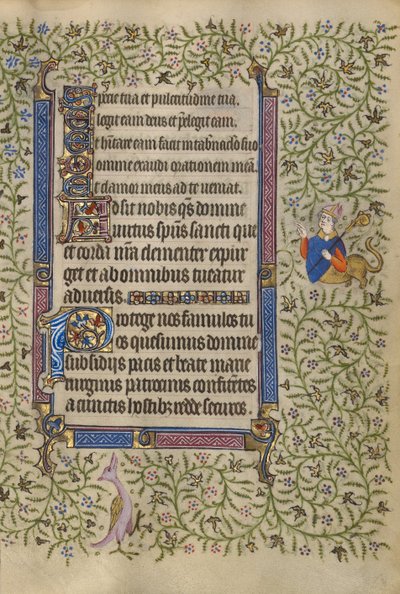 Specie tua et pulcritudine tua.
Elegit eam deus et p̄elegit eam.
Et hitare eam facit in tab̄naclo suo
Domine exaudi orationem meā.
Et clamor meus ad te veniat.
Adsit nobis q̄s domine
virtus spūs sancti que
et corda n̄ra clementer expur
get et ab omnibus tueatur
aduersis.
Protege nos famulos tu
os quesumus domine
subsidijs pacis et beate marie
virginis patrocinis confidētes
a cunctis hostib; redde securos.